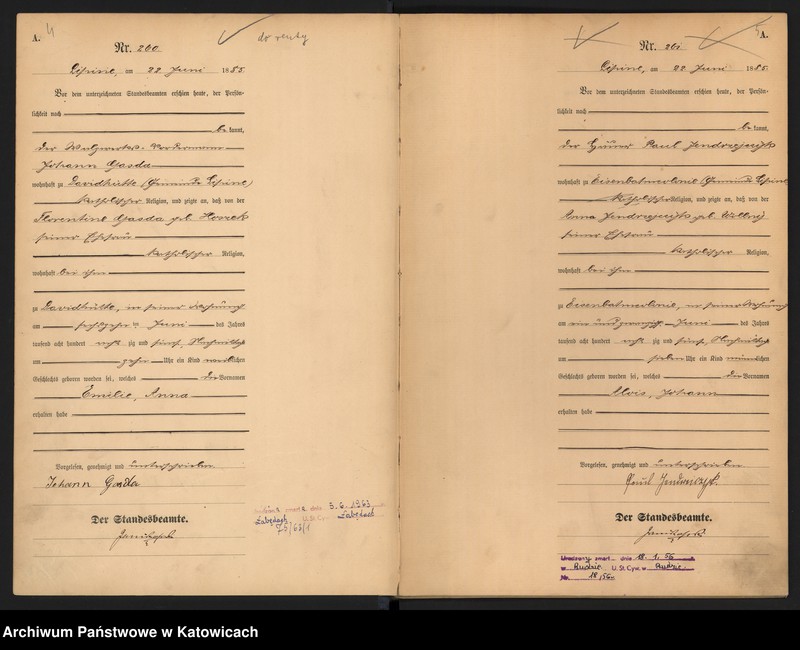 A. 4
Nr. 260.
do renty
Lipine, am 22 Juni 1885.
Vor dem unterzeichneten Standesbeamten erschien heute, der Persön-
lichkeit nach
be kannt,
der Walzwerks-Vordermann
Johann Gasda
wohnhaft zu Davidhütte (Gemeinde Lipine)
katholischer Religion, und zeigte an, daß von der
Florentine Gasda geb.
seiner Ehefrau
katholischer Religion,
wohnhaft bei ihm
zu Davidhütte, in seiner Wohnung
am sechszehn Juni des Jahres
tausend acht hundert acht zig und fünf, Nachmittags
um zehn Uhr ein Kind weiblichen
Geschlechts geboren worden sei, welches die Vornamen
Emilie, Anna
erhalten habe
Vorgelesen, genehmigt und unterschrieben
Johann Gasda
Der Standesbeamte.
dnia 3.6.1963
U.S.C.
75/63/1
A.
Nr. 261.
Lipine, am 22 Juni 1885.
Vor dem unterzeichneten Standesbeamten erschien heute, der Persön-
lichkeit nach
be kannt,
der Häuer Paul
wohnhaft zu (Gemeinde Lipine)
katholischer Religion, und zeigte an, daß von der
Anna geb.
seiner Ehefrau
katholischer Religion,
wohnhaft bei ihm
zu in seiner Wohnung
am ein und zwanzig Juni des Jahres
tausend acht hundert acht zig und fünf, Nachmittags
um sieben Uhr ein Kind männlichen
Geschlechts geboren worden sei, welches die Vornamen
Alois, Johann
erhalten habe
Vorgelesen, genehmigt und unterschrieben
Paul
Der Standesbeamte.
zmarł dnia 18.1.56
w Rudzie U.St.Cyw. w Rudzie
Nr. 18/56
Archiwum Państwowe w Katowicach